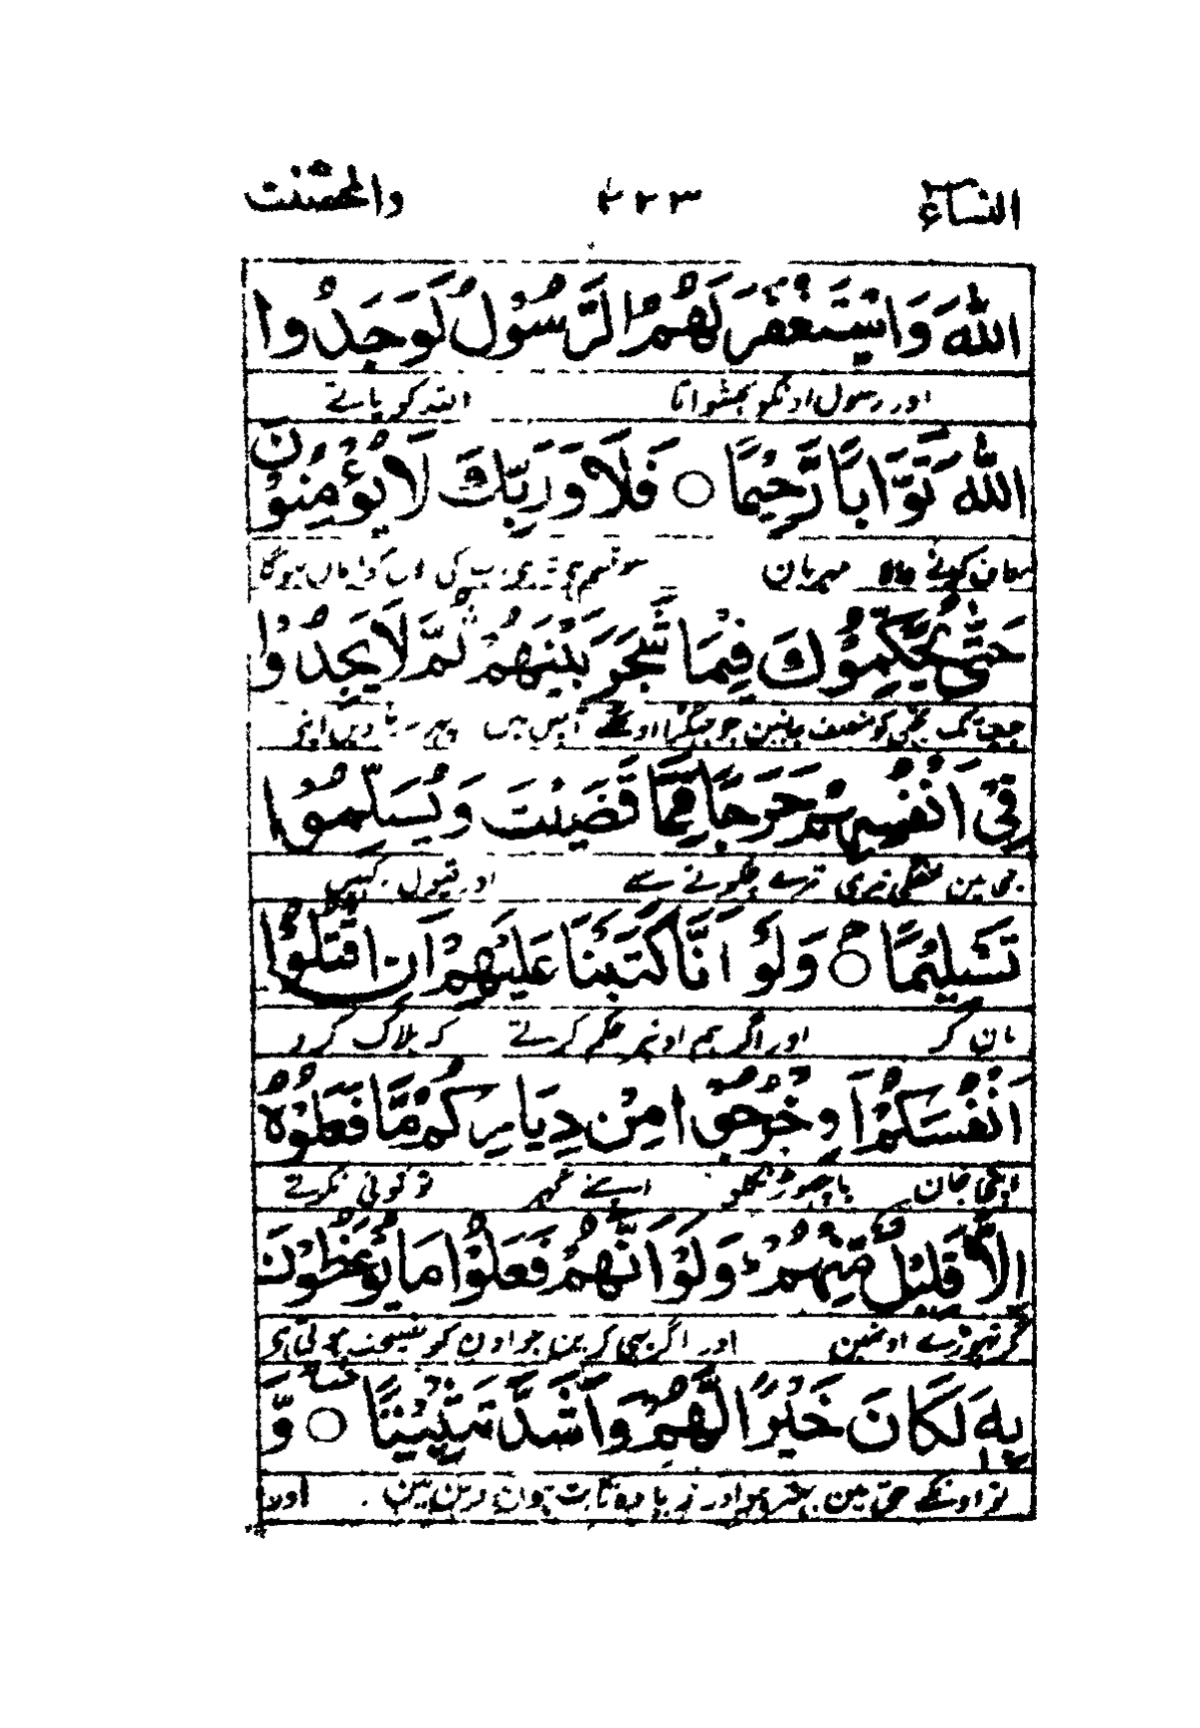 النساء ٤ ٢٢٣ والمحصنت ٥
اللّٰهَ وَاسْتَغْفَرَ لَهُمُ الرَّسُوْلُ لَوَجَدُوا
اور رسول اونکو بخشواتا اللہ کو پاتے
اللّٰهَ تَوَّابًا رَّحِيْمًا ○ فَلَا وَرَبِّكَ لَا يُؤْمِنُوْنَ
معاف کرنے والا مہربان سو قسم ہی تیری رب کی ان کو ایمان نہوگا
حَتّٰى يُحَكِّمُوْكَ فِيْمَا شَجَرَ بَيْنَهُمْ ثُمَّ لَا يَجِدُوْا
جبتک تجھی کو منصف جانین جو جھگڑا اوٹھے آپس میں پھر نپاویں اپنی
فِيْٓ اَنْفُسِهِمْ حَرَجًا مِّمَّا قَضَيْتَ وَيُسَلِّمُوْا
جی مین خفگی تیری چکونے سے اور قبول رکہیں
تَسْلِيْمًا ○ وَلَوْ اَنَّا كَتَبْنَا عَلَيْهِمْ اَنِ اقْتُلُوْٓا
مان کر اور اگر ہم اونپر حکم کرتے کہ ہلاک کرو
اَنْفُسَكُمْ اَوِ خْرُجُوْا مِنْ دِيَارِكُمْ مَّا فَعَلُوْهُ
اپنی جان یا چھوڑ نکلو اپنے گھر تو کوئی نکرتے
اِلَّا قَلِيْلٌ مِّنْهُمْ ؕ وَلَوْ اَنَّهُمْ فَعَلُوْا مَا يُوْعَظُوْنَ
مگر تہوڑے اونمین اور اگر یہی کرین جو اون کو نصیحت ہوتی ہی
بِهٖ لَكَانَ خَيْرًا لَّهُمْ وَاَشَدَّ تَثْبِيْتًا ○ وَّ
تو اونکے حق مین بہتر ہو اور زیادہ ثابت ہون دین مین . اور